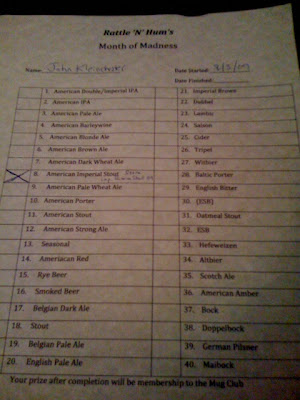 Rattle 'N' Hum's
Month of Madness
Name: John
Date Started:
Date Finished:
1. American Double/Imperial IPA
2. American IPA
3. American Pale Ale
4. American Barleywine
5. American Blonde Ale
6. American Brown Ale
7. American Dark Wheat Ale
8. American Imperial Stout
9. American Pale Wheat Ale
10. American Porter
11. American Stout
12. American Strong Ale
13. Seasonal
14. Ameriacan Red
15. Rye Beer
16. Smoked Beer
17. Belgian Dark Ale
18. Stout
19. Belgian Pale Ale
20. English Pale Ale
21. Imperial Brown
22. Dubbel
23. Lambic
24. Saison
25. Cider
26. Tripel
27. Witbier
28. Baltic Porter
29. English Bitter
30. (ESB)
31. Oatmeal Stout
32. ESB
33. Hefeweizen
34. Altbier
35. Scotch Ale
36. American Amber
37. Bock
38. Doppelbock
39. German Pilsner
40. Maibock
Your prize after completion will be membership to the Mug Club